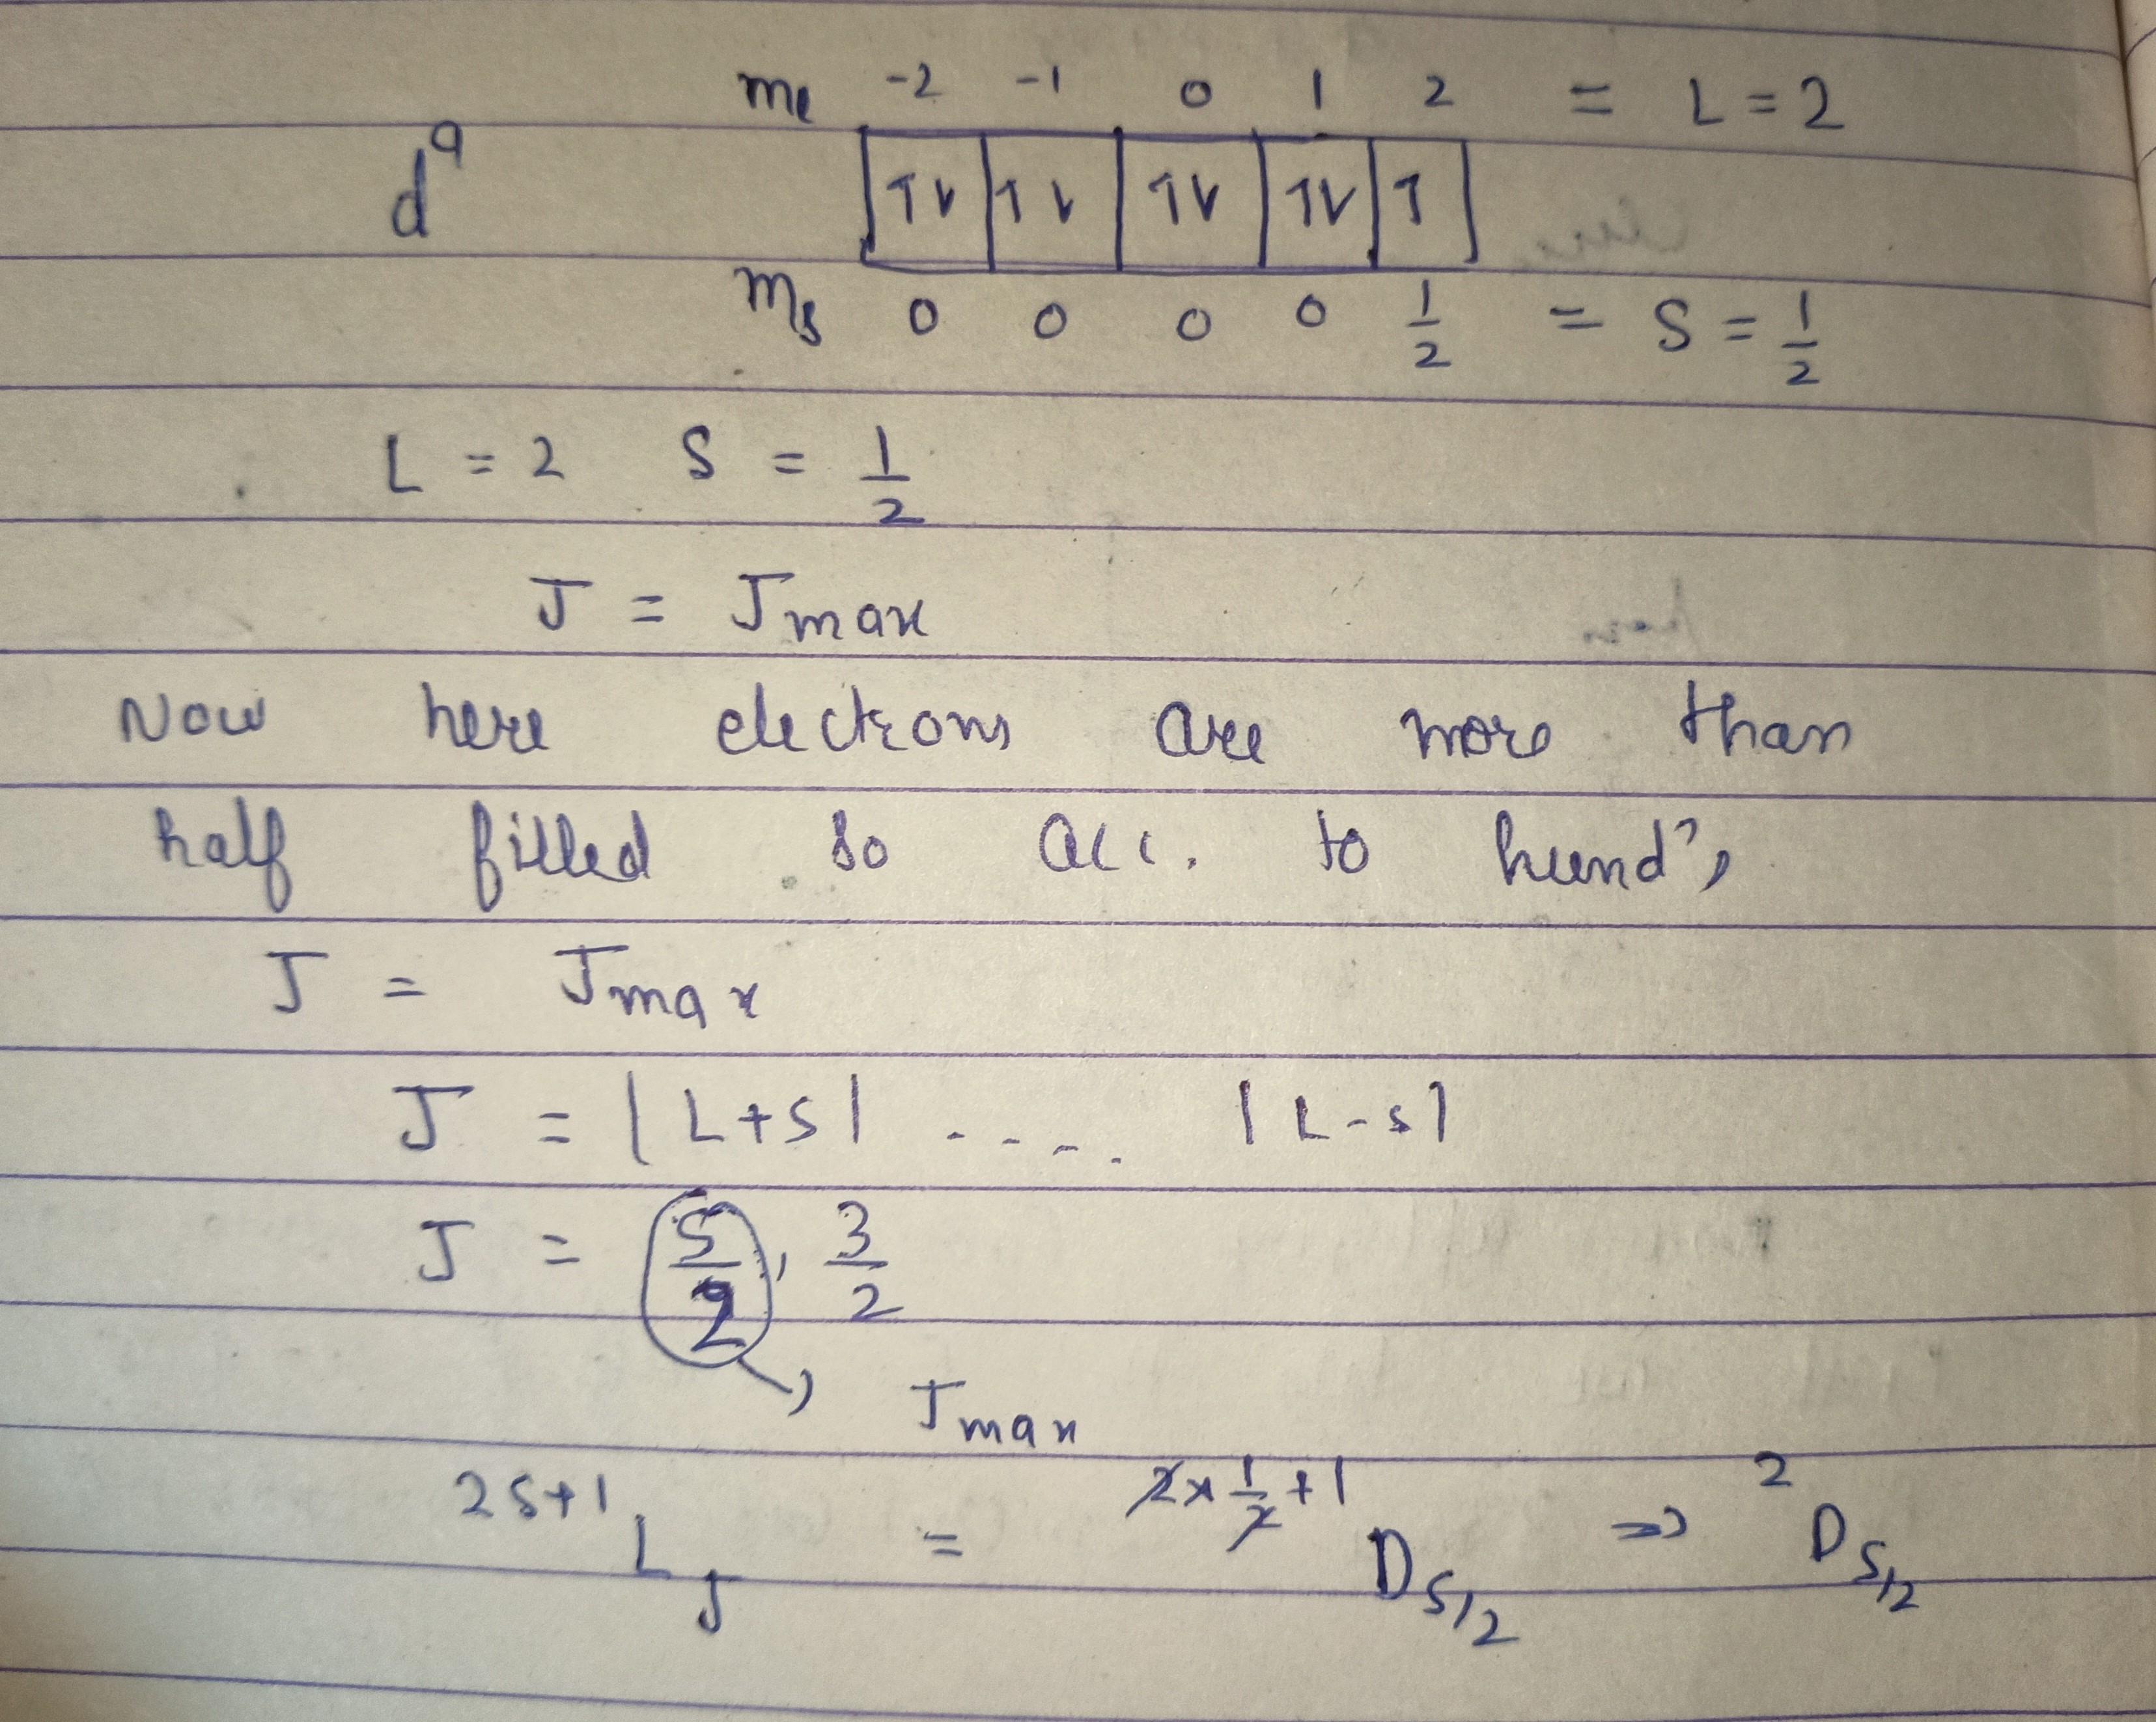 mₗ -2 -1 0 1 2 = L = 2
d⁹ 1↓ 1↓ 1↓ 1↓ 1
mₛ 0 0 0 0 1/2 = S = 1/2
L = 2 S = 1/2
J = Jmax
Now here electrons are more than
half filled so acc. to hund's
J = Jmax
J = |L+S| ---. |L-S|
J = 5/2, 3/2
Jmax
²ˢ⁺¹L_J = ^(2×1/2+1)D₅/₂ ⇒ ²D₅/₂